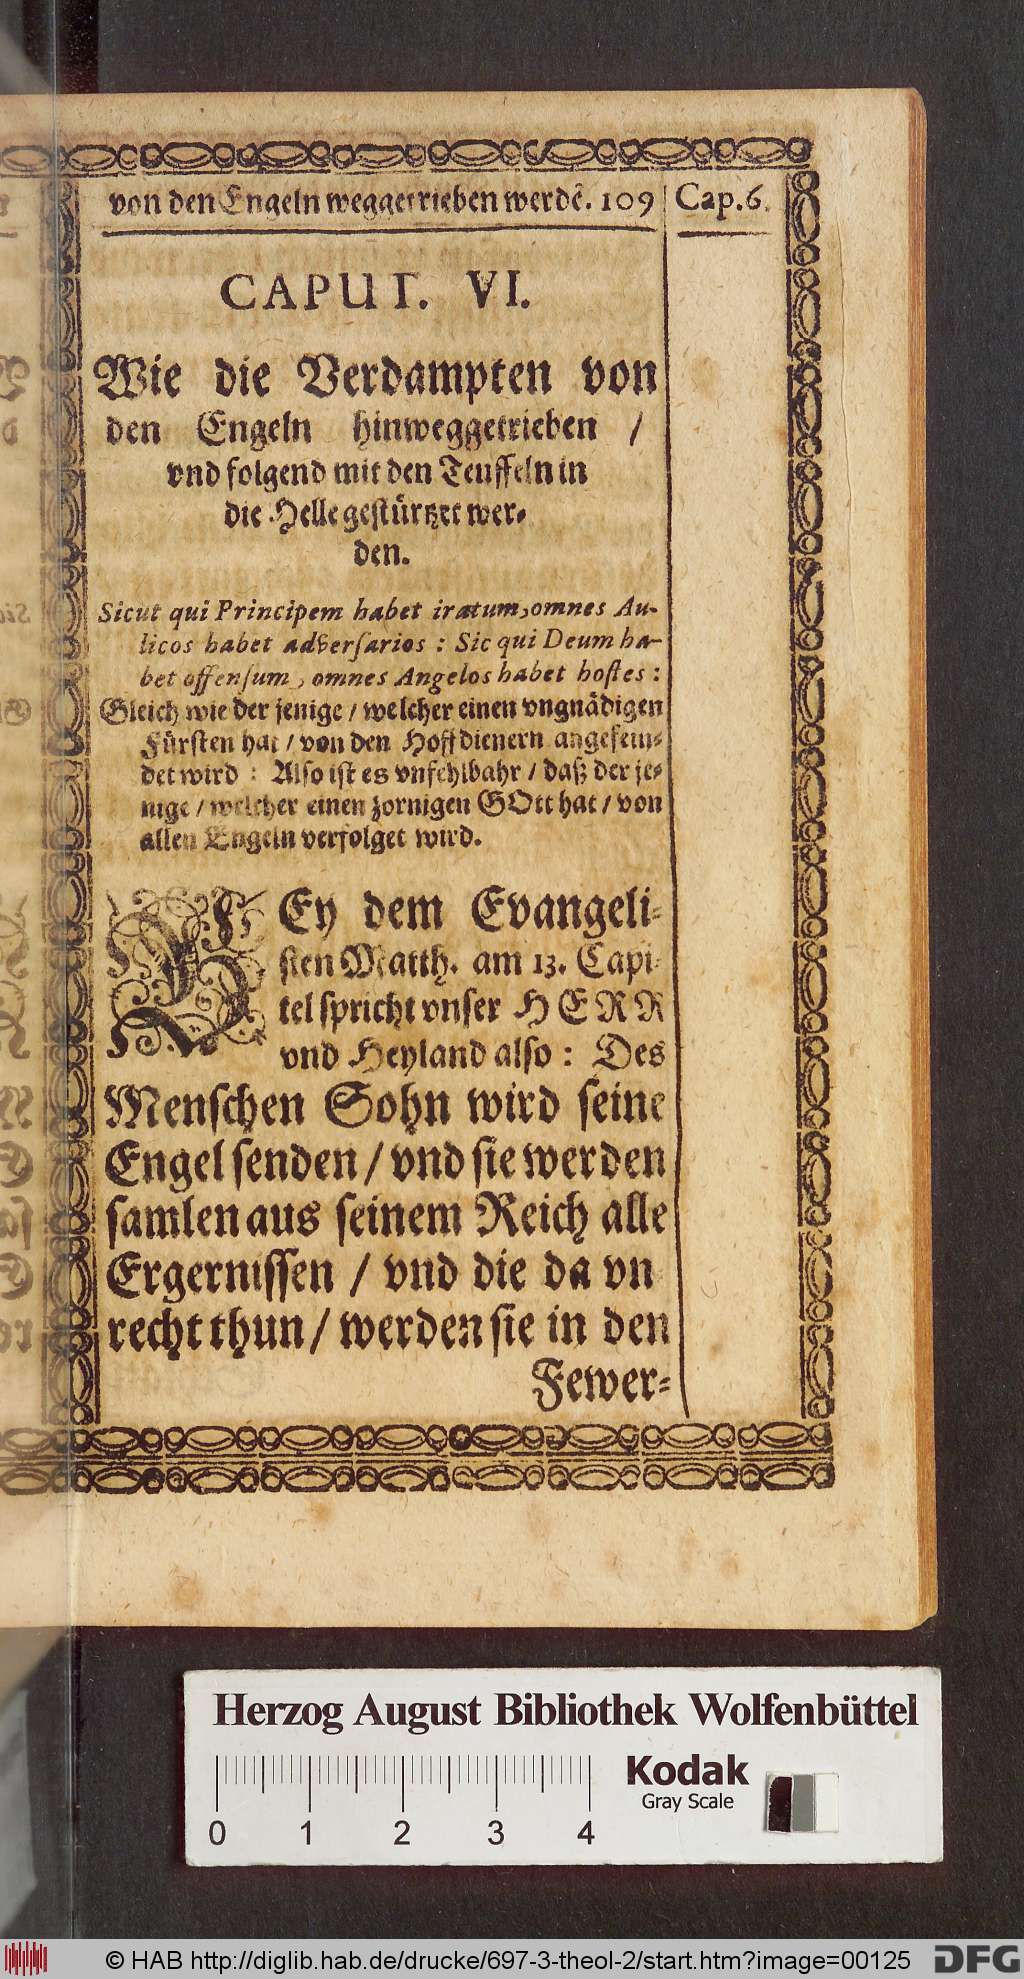 von den Engeln weggetrieben werdẽ. 109 Cap. 6.
CAPUT. VI.
Wie die Verdampten von
den Engeln hinweggetrieben /
vnd folgend mit den Teuffeln in
die Helle gestürtzet wer-
den.
Sicut qui Principem habet iratum, omnes Au-
licos habet adversarios : Sic qui Deum ha-
bet offensum, omnes Angelos habet hostes :
Gleich wie der jenige / welcher einen vngnädigen
Fürsten hat / von den Hoffdienern angefein-
det wird : Also ist es vnfehlbahr / daß der je-
nige / welcher einen zornigen GOtt hat / von
allen Engeln verfolget wird.
BEy dem Evangeli-
sten Matth. am 13. Capi-
tel spricht vnser HERR
vnd Heyland also : Des
Menschen Sohn wird seine
Engel senden / vnd sie werden
samlen aus seinem Reich alle
Ergernissen / vnd die da vn
recht thun / werden sie in den
Fewer-
Herzog August Bibliothek Wolfenbüttel
Kodak
Gray Scale
0 1 2 3 4
© HAB http://diglib.hab.de/drucke/697-3-theol-2/start.htm?image=00125 DFG